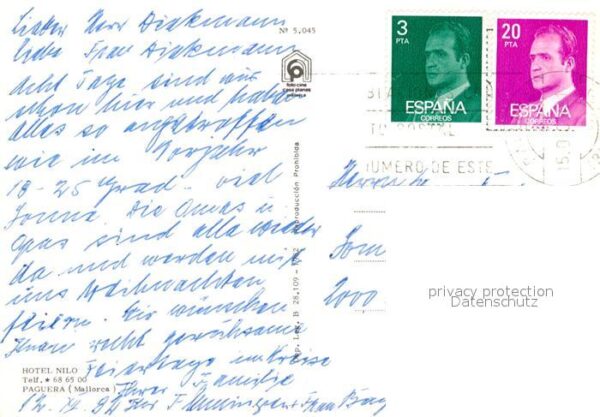 Lieber Herr Diekmann
liebe Frau Diekmann
Acht Tage sind wir
schon hier und haben
alles so angetroffen
wie im Vorjahr
18-25 Grad. viel
Sonne. Die Omas u
Opas sind alle wieder
da und werden mit
uns Weihnachten
feiern. Wir wünschen
Ihnen recht geruhsame
Feiertage im Kreise
Ihrer Familie
HOTEL NILO
Telf. * 68 65 00
PAGUERA (Mallorca)
Nº 5.045
foto-cine
casa planas
Reproducción Prohibida
Dep. Leg. B 28.109
3
PTA
ESPAÑA
CORREOS
20
PTA
ESPAÑA
CORREOS
NUMERO DE ESTE
Herrn
2000
privacy protection
Datenschutz